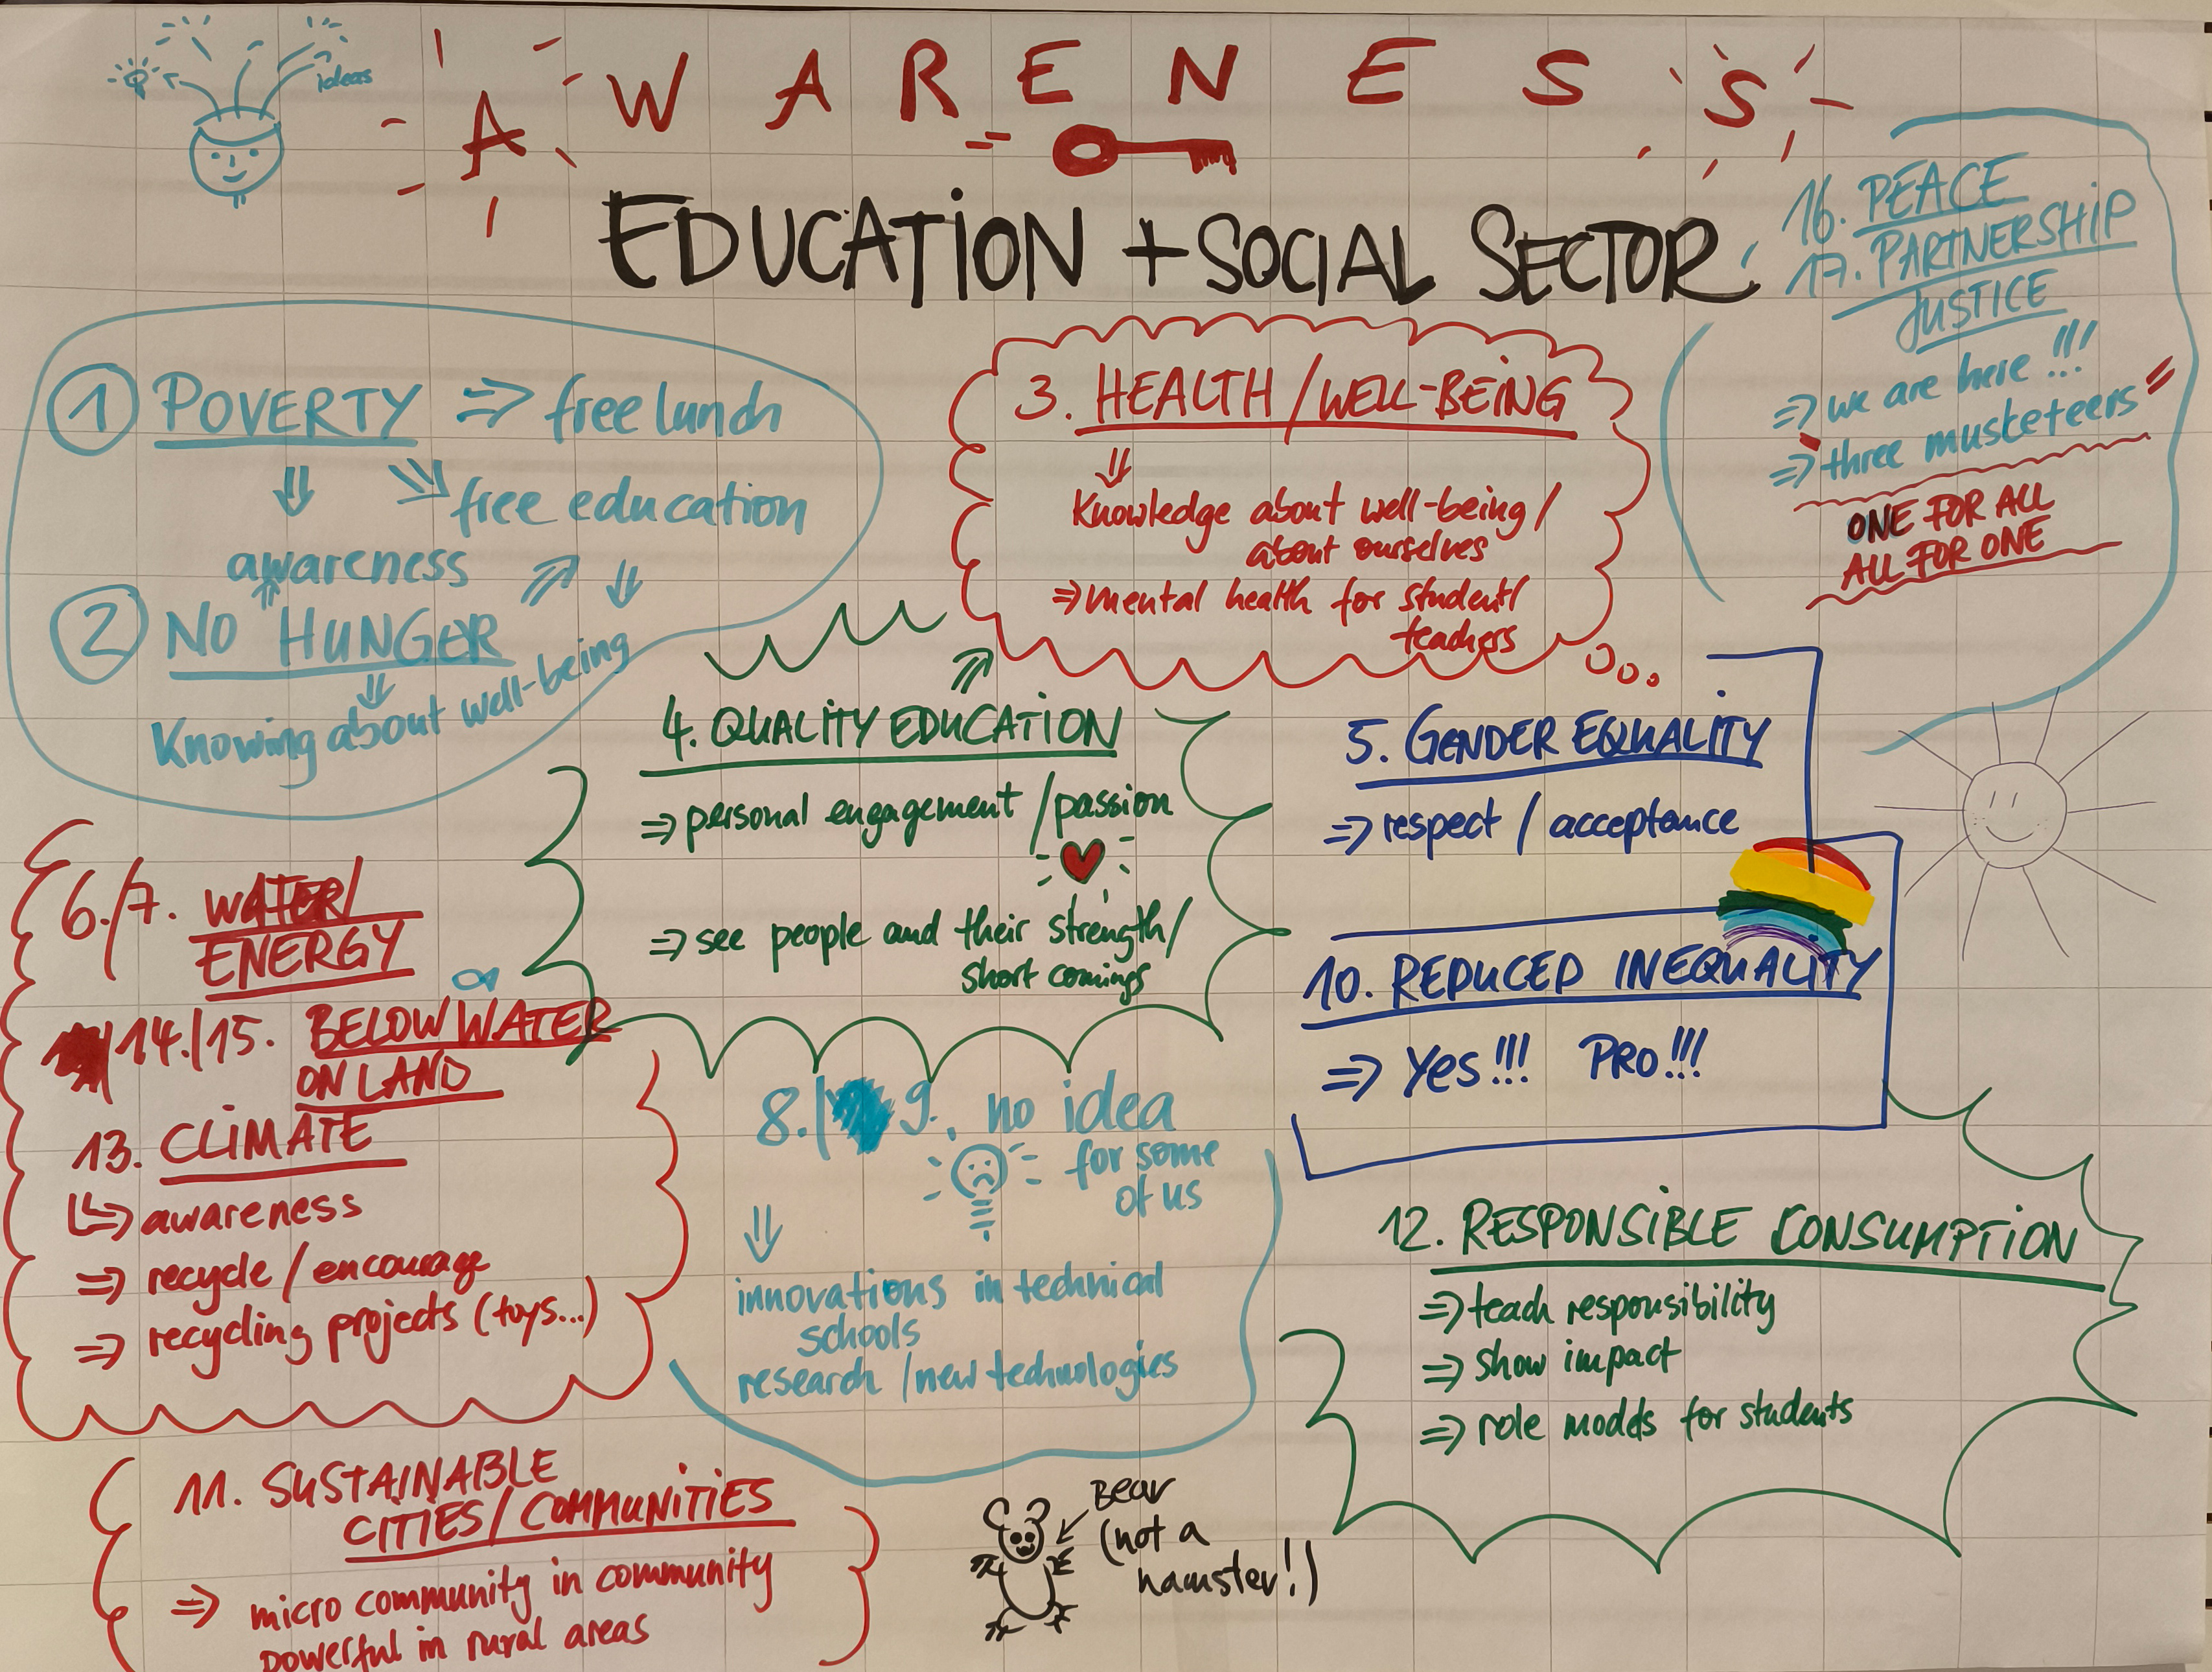 ideas
AWARENESS
EDUCATION + SOCIAL SECTOR
16. PEACE
17. PARTNERSHIP
JUSTICE
⇒ we are here !!!
⇒ three musketeers
ONE FOR ALL
ALL FOR ONE
1 POVERTY ⇒ free lunch
free education
awareness
2 NO HUNGER
Knowing about well-being
3. HEALTH / WELL-BEING
Knowledge about well-being /
about ourselves
⇒ mental health for student/
teachers
4. QUALITY EDUCATION
⇒ personal engagement / passion
⇒ see people and their strength/
short comings
5. GENDER EQUALITY
⇒ respect / acceptance
10. REDUCED INEQUALITY
⇒ Yes!!! PRO!!!
6./7. WATER/
ENERGY
14./15. BELOW WATER
ON LAND
13. CLIMATE
⇒ awareness
⇒ recycle / encourage
⇒ recycling projects (toys...)
8./9. no idea
for some
of us
innovations in technical
schools
research / new technologies
12. RESPONSIBLE CONSUMPTION
⇒ teach responsibility
⇒ show impact
⇒ role models for students
11. SUSTAINABLE
CITIES / COMMUNITIES
⇒ micro community in community
powerful in rural areas
Bear
(not a
hamster!)